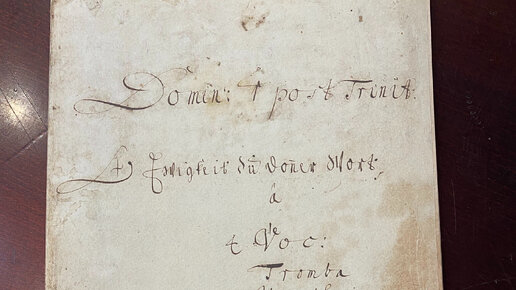 Domin: 1 post Trinit.
O Ewigkeit dũ doñer Wort,
â
4 Voc:
Tromba